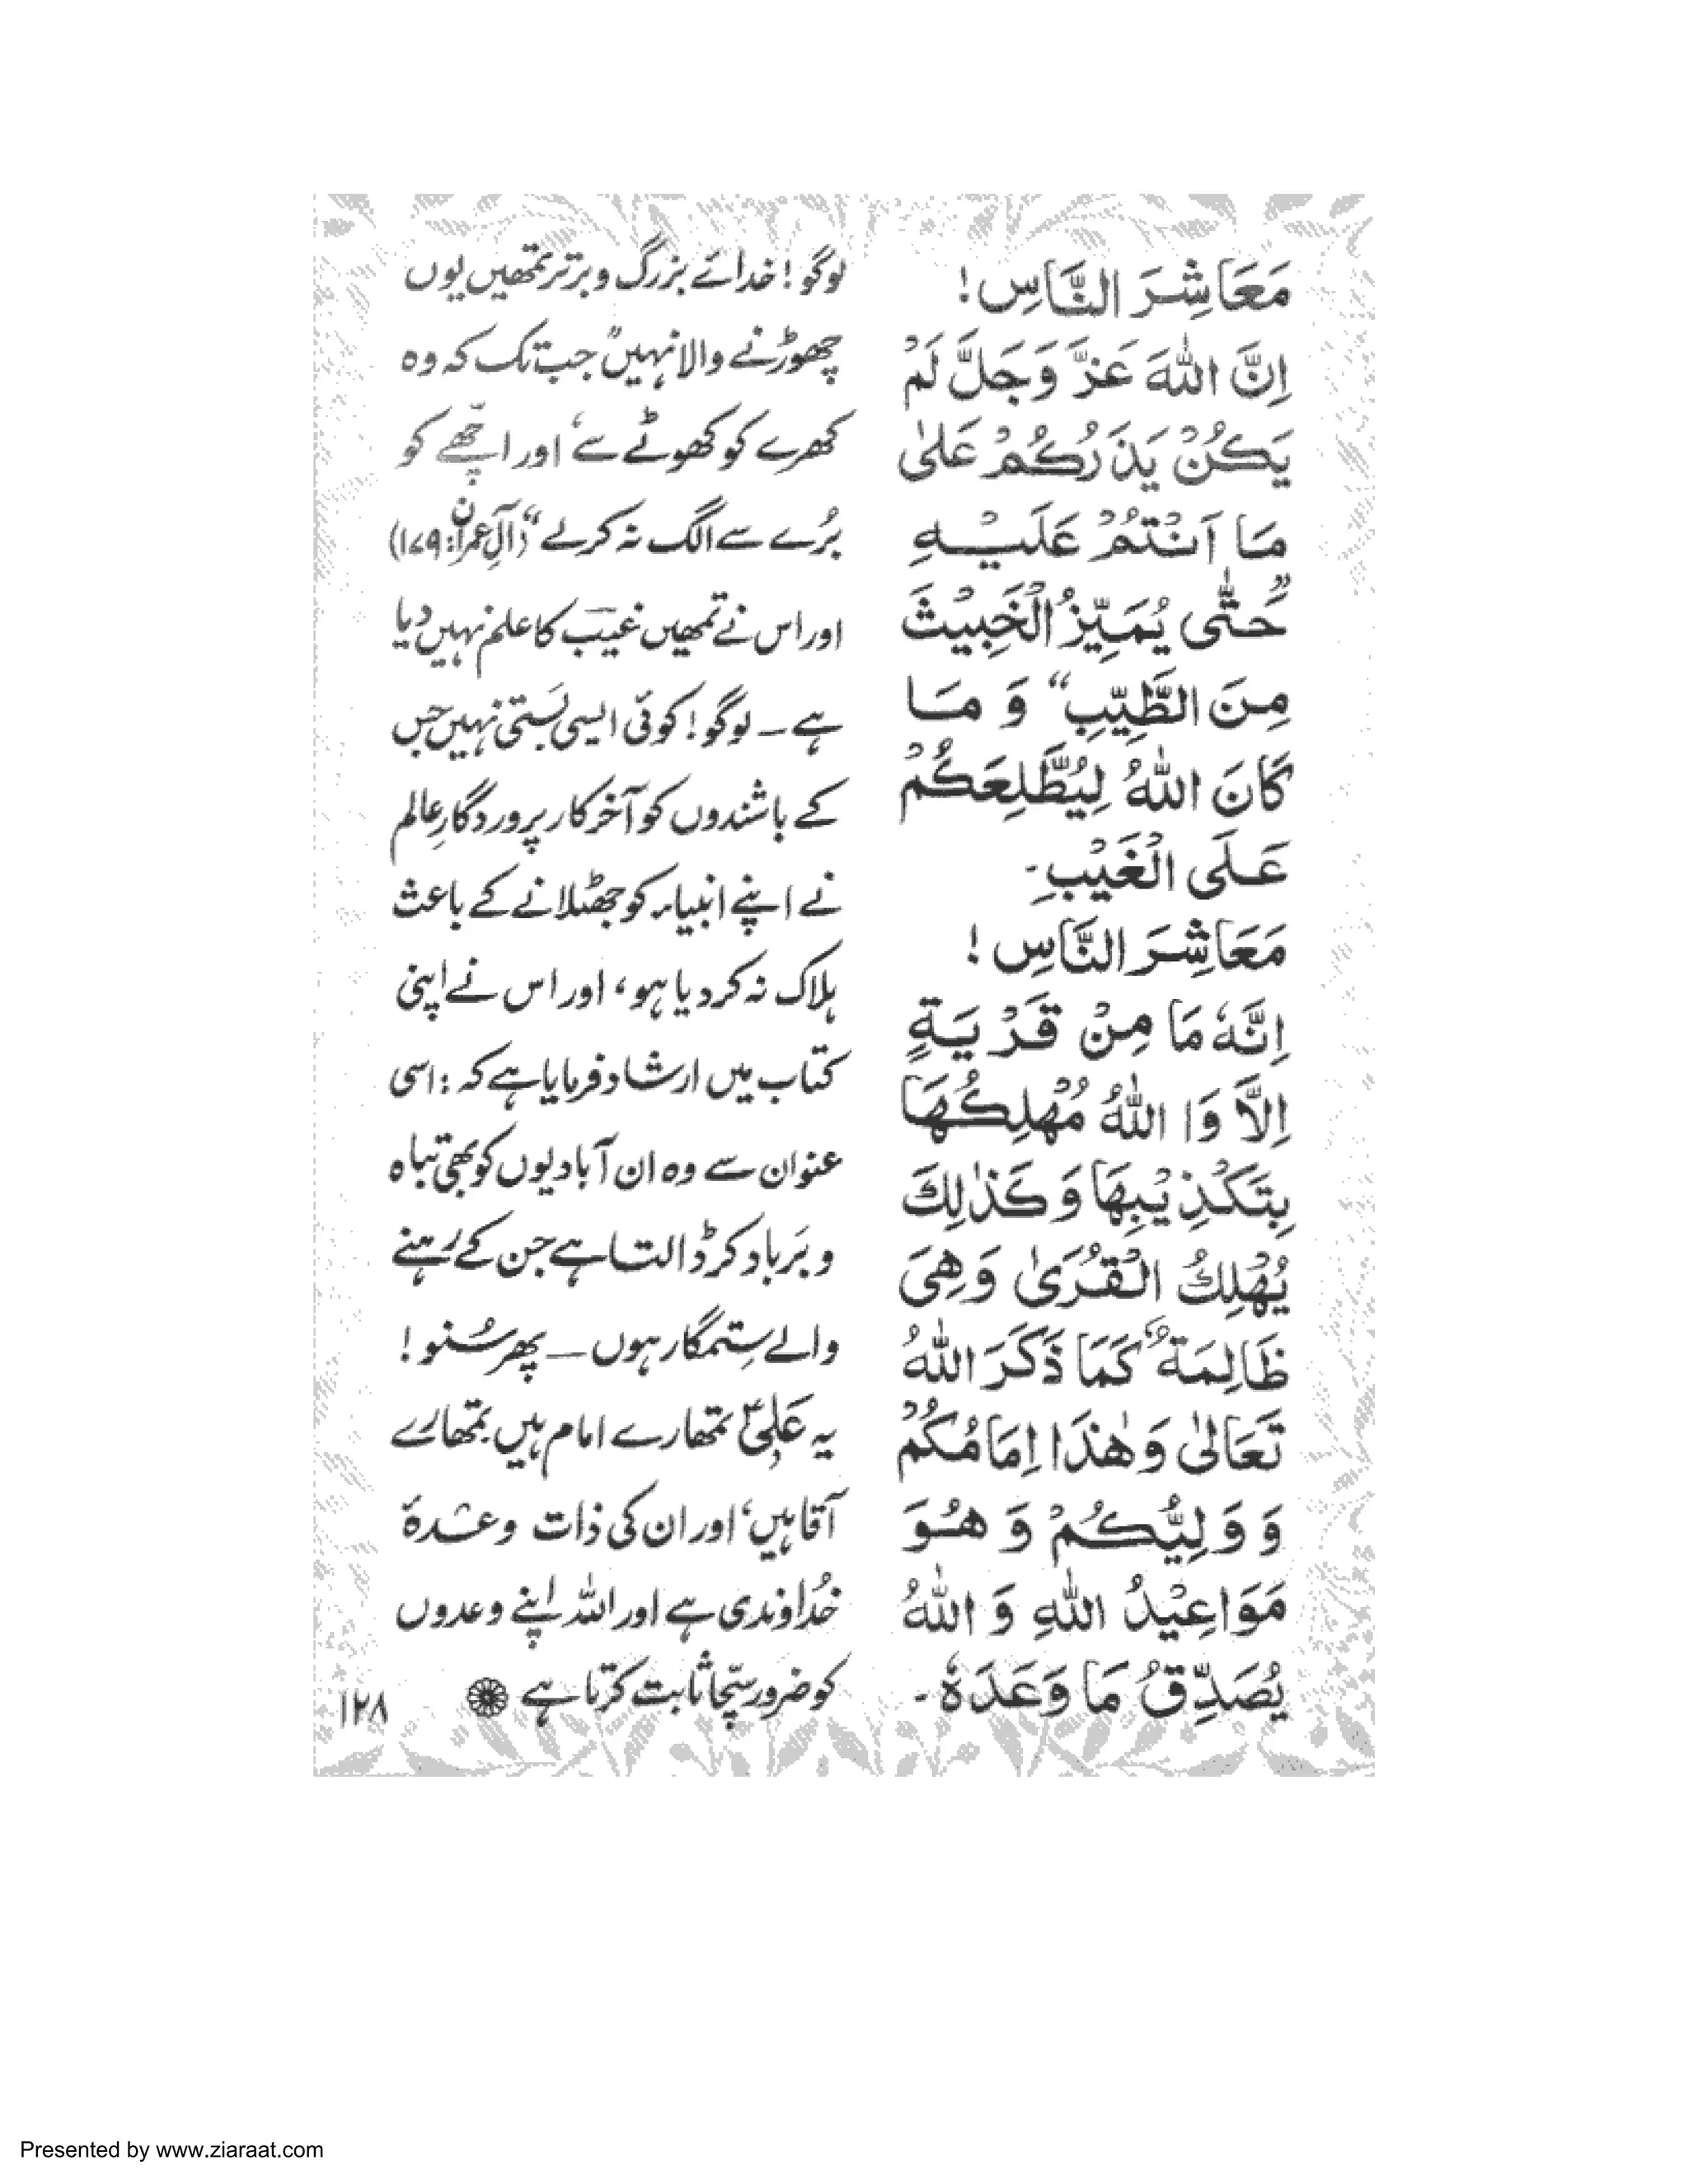 مَعَاشِرَ النَّاسِ!
اِنَّ اللهَ عَزَّ وَجَلَّ لَمْ
يَكُنْ يَذَرُكُمْ عَلىٰ
مَا اَنْتُمْ عَلَيْهِ
حَتّٰى يُمَيِّزُ الْخَبِيْثَ
مِنَ الطَّيِّبِ" وَ مَا
كَانَ اللهُ لِيُطَّلِعَكُمْ
عَلَى الْغَيْبِ۔
مَعَاشِرَ النَّاسِ!
اِنَّهٗ مَا مِنْ قَرْيَةٍ
اِلاَّ وَا اللهُ مُهْلِكُهَا
بِتَكْذِيْبِهَا وَكَذٰلِكَ
يُهْلِكُ الْقُرَىٰ وَهِىَ
ظَالِمَةٌ كَمَا ذَكَرَ اللهُ
تَعَالىٰ وَهٰذَا اِمَامُكُمْ
وَ وَلِيُّكُمْ وَ هُوَ
مَوَاعِيْدُ اللهِ وَ اللهُ
يُصَدِّقُ مَا وَعَدَهٗ۔
لوگو! خدائے بزرگ و برتر تمھیں یوں
چھوڑنے والا نہیں" جب تک کہ وہ
کھرے کو کھوٹے سے، اور اچھے کو
بُرے سے الگ نہ کرلے" (آلِ عمران: ۱۷۹)
اور اس نے تمھیں غیب کا علم نہیں دیا
ہے۔ لوگو! کوئی ایسی بستی نہیں جس
کے باشندوں کو آخر کار پروردگارِ عالم
نے اپنے انبیاء کو جھٹلانے کے باعث
ہلاک نہ کر دیا ہو، اور اس نے اپنی
کتاب میں ارشاد فرمایا ہے کہ: اسی
عنوان سے وہ ان آبادیوں کو بھی تباہ
و بَرباد کر ڈالتا ہے جن کے رہنے
والے سِتمگار ہوں — پھر سُنو!
یہ عَلِیؑ تمھارے امام ہیں۔ تمھارے
آقا ہیں، اور ان کی ذات وعدۂ
خُداوندی ہے اور اللہ اپنے وعدوں
کو ضرور سچّا ثابت کرتا ہے
۱۲۸
Presented by www.ziaraat.com